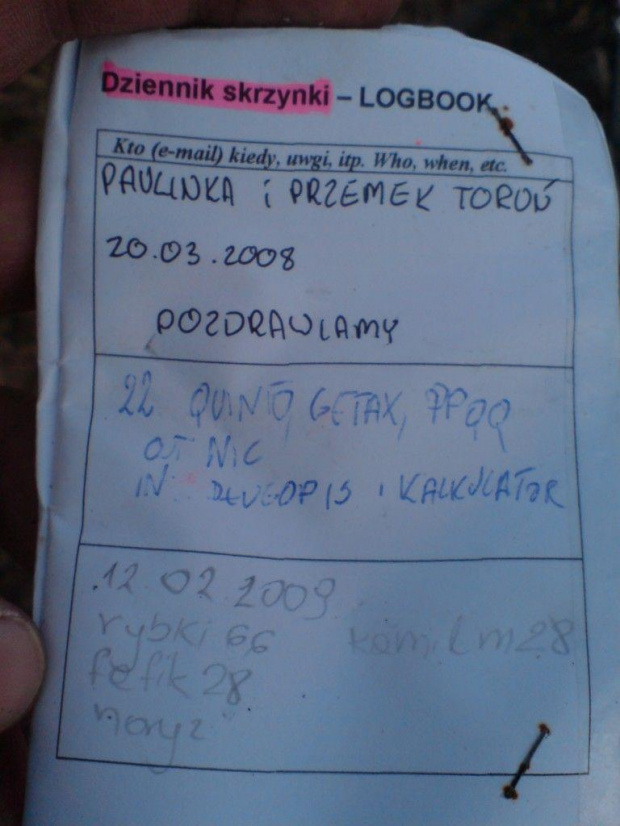 Dziennik skrzynki – LOGBOOK
Kto (e-mail) kiedy, uwgi, itp. Who, when, etc.
PAULINKA i PRZEMEK TORUŃ
20.03.2008
POZDRAWIAMY
22 QUINTO, GETAX, PPQQ
OUT NIC
IN: DŁUGOPIS i KALKULATOR
.12 02 2009
rybki 66 kamilm28
fefik 28